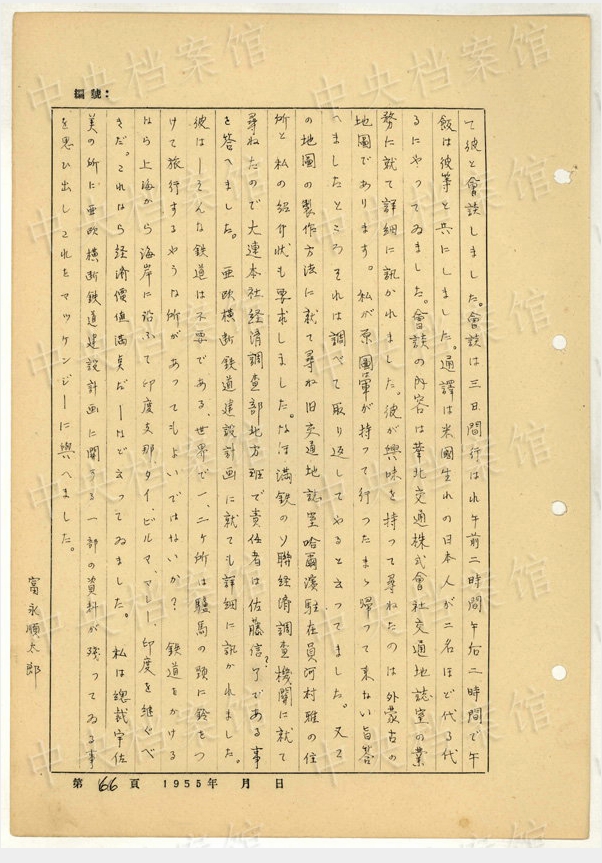 編號：
て彼と會談しました。會談は三日間行はれ午前二時間午右二時間で午
飯は彼等と共にしました。通譯は米國生れの日本人が二名ほど代る代
るにやつてゐました。會談の內容は華北交通株式會社交通地誌室の業
務に就て詳細に訊かれました。彼が興味を持つて尋ねたのは外蒙古の
地圖であります。私が原圖は軍が持つて行つたまゝ帰つて来ない旨答
へましたところそれは調べて取り返してやると云つてました。又て
の地圖の製作方法に就て尋ね旧交通地誌室哈爾濱駐在員河村雅の住
所と私の紹介状も要求しました。なほ満鉄のソ聯経済調査機関に就て
尋ねたので大連本社経済調査部北方班で責任者は佐藤信了?である事
を答へました。亜欧横断鉄道建設計画に就ても詳細に訊かれました。
彼は―そんな鉄道は不要である、世界で一、二ヶ所は驢馬の頸に鈴をつ
けて旅行するやうな所があつてもよいではないか？鉄道をかける
なら上海から海岸に沿ふて印度支那、タイ、ビルマ、マレー、印度を継ぐべ
きだ。これなら経済價値満点だ―など云つてゐました。私は總裁宇佐
美の所に亜欧横断鉄道建設計画に関する一部の資料が残つてゐる事
を思ひ出しこれをマツケンジーに與へました。
富永順太郎
第 66 頁 1955年 月 日
中央档案馆